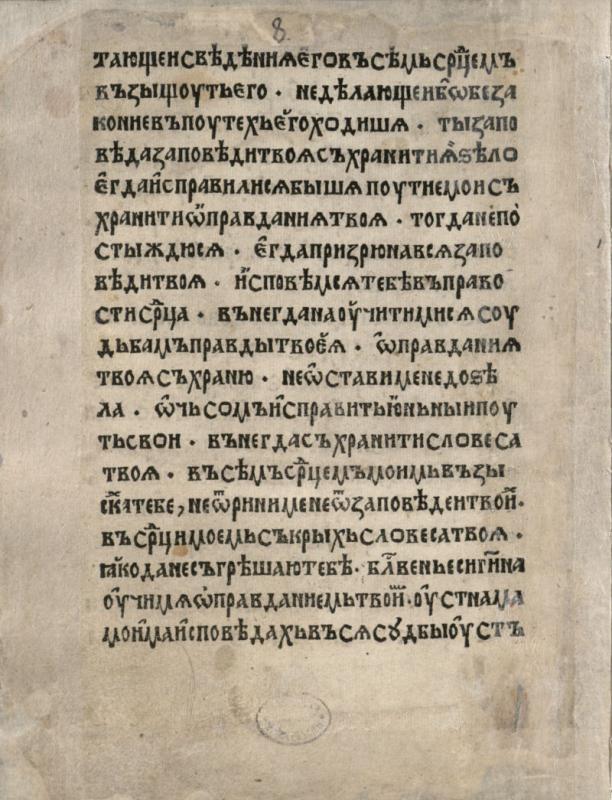 8
тающеисвѣдѣниꙗєговъсѣмьср҃цемъ
възыщоутьего · недѣлающеибѡбеза
кониевъпоутехьєгоходишѧ · тызапо
вѣдазаповѣдитвоѧсъхранитиѧѕѣло
єгдаисправилисѧбышѧпоутиемоисъ
хранитиѡправданиѧтвоѧ · тогданепо
стыждюсѧ · єгдапризрюнавсѧзапо
вѣдитвоѧ · исповѣмсѧтебѣвъправо
стиср҃ца · вънегданаоучитимисѧсоу
дьбамъправдытвоеѧ · ѡправданиѧ
твоѧсъхраню · неѡставименедоѕѣ
ла · ѡчьсомъисправитьюныипоу
тьсвои · вънегдасъхранитисловеса
твоѧ · въсѣмъср҃цемъмоимьвъзы
скатебе, неѿринименеѿзаповѣдеитвои ·
въср҃цимоемьсъкрыхьсловесатвоѧ ·
ꙗкоданесъгрѣшаютебѣ · бл҃веньесиги҃на
оучимѧѡправданиемьтвои · оустнама
моимаисповѣдахьвъсѧсꙋдбыоустъ